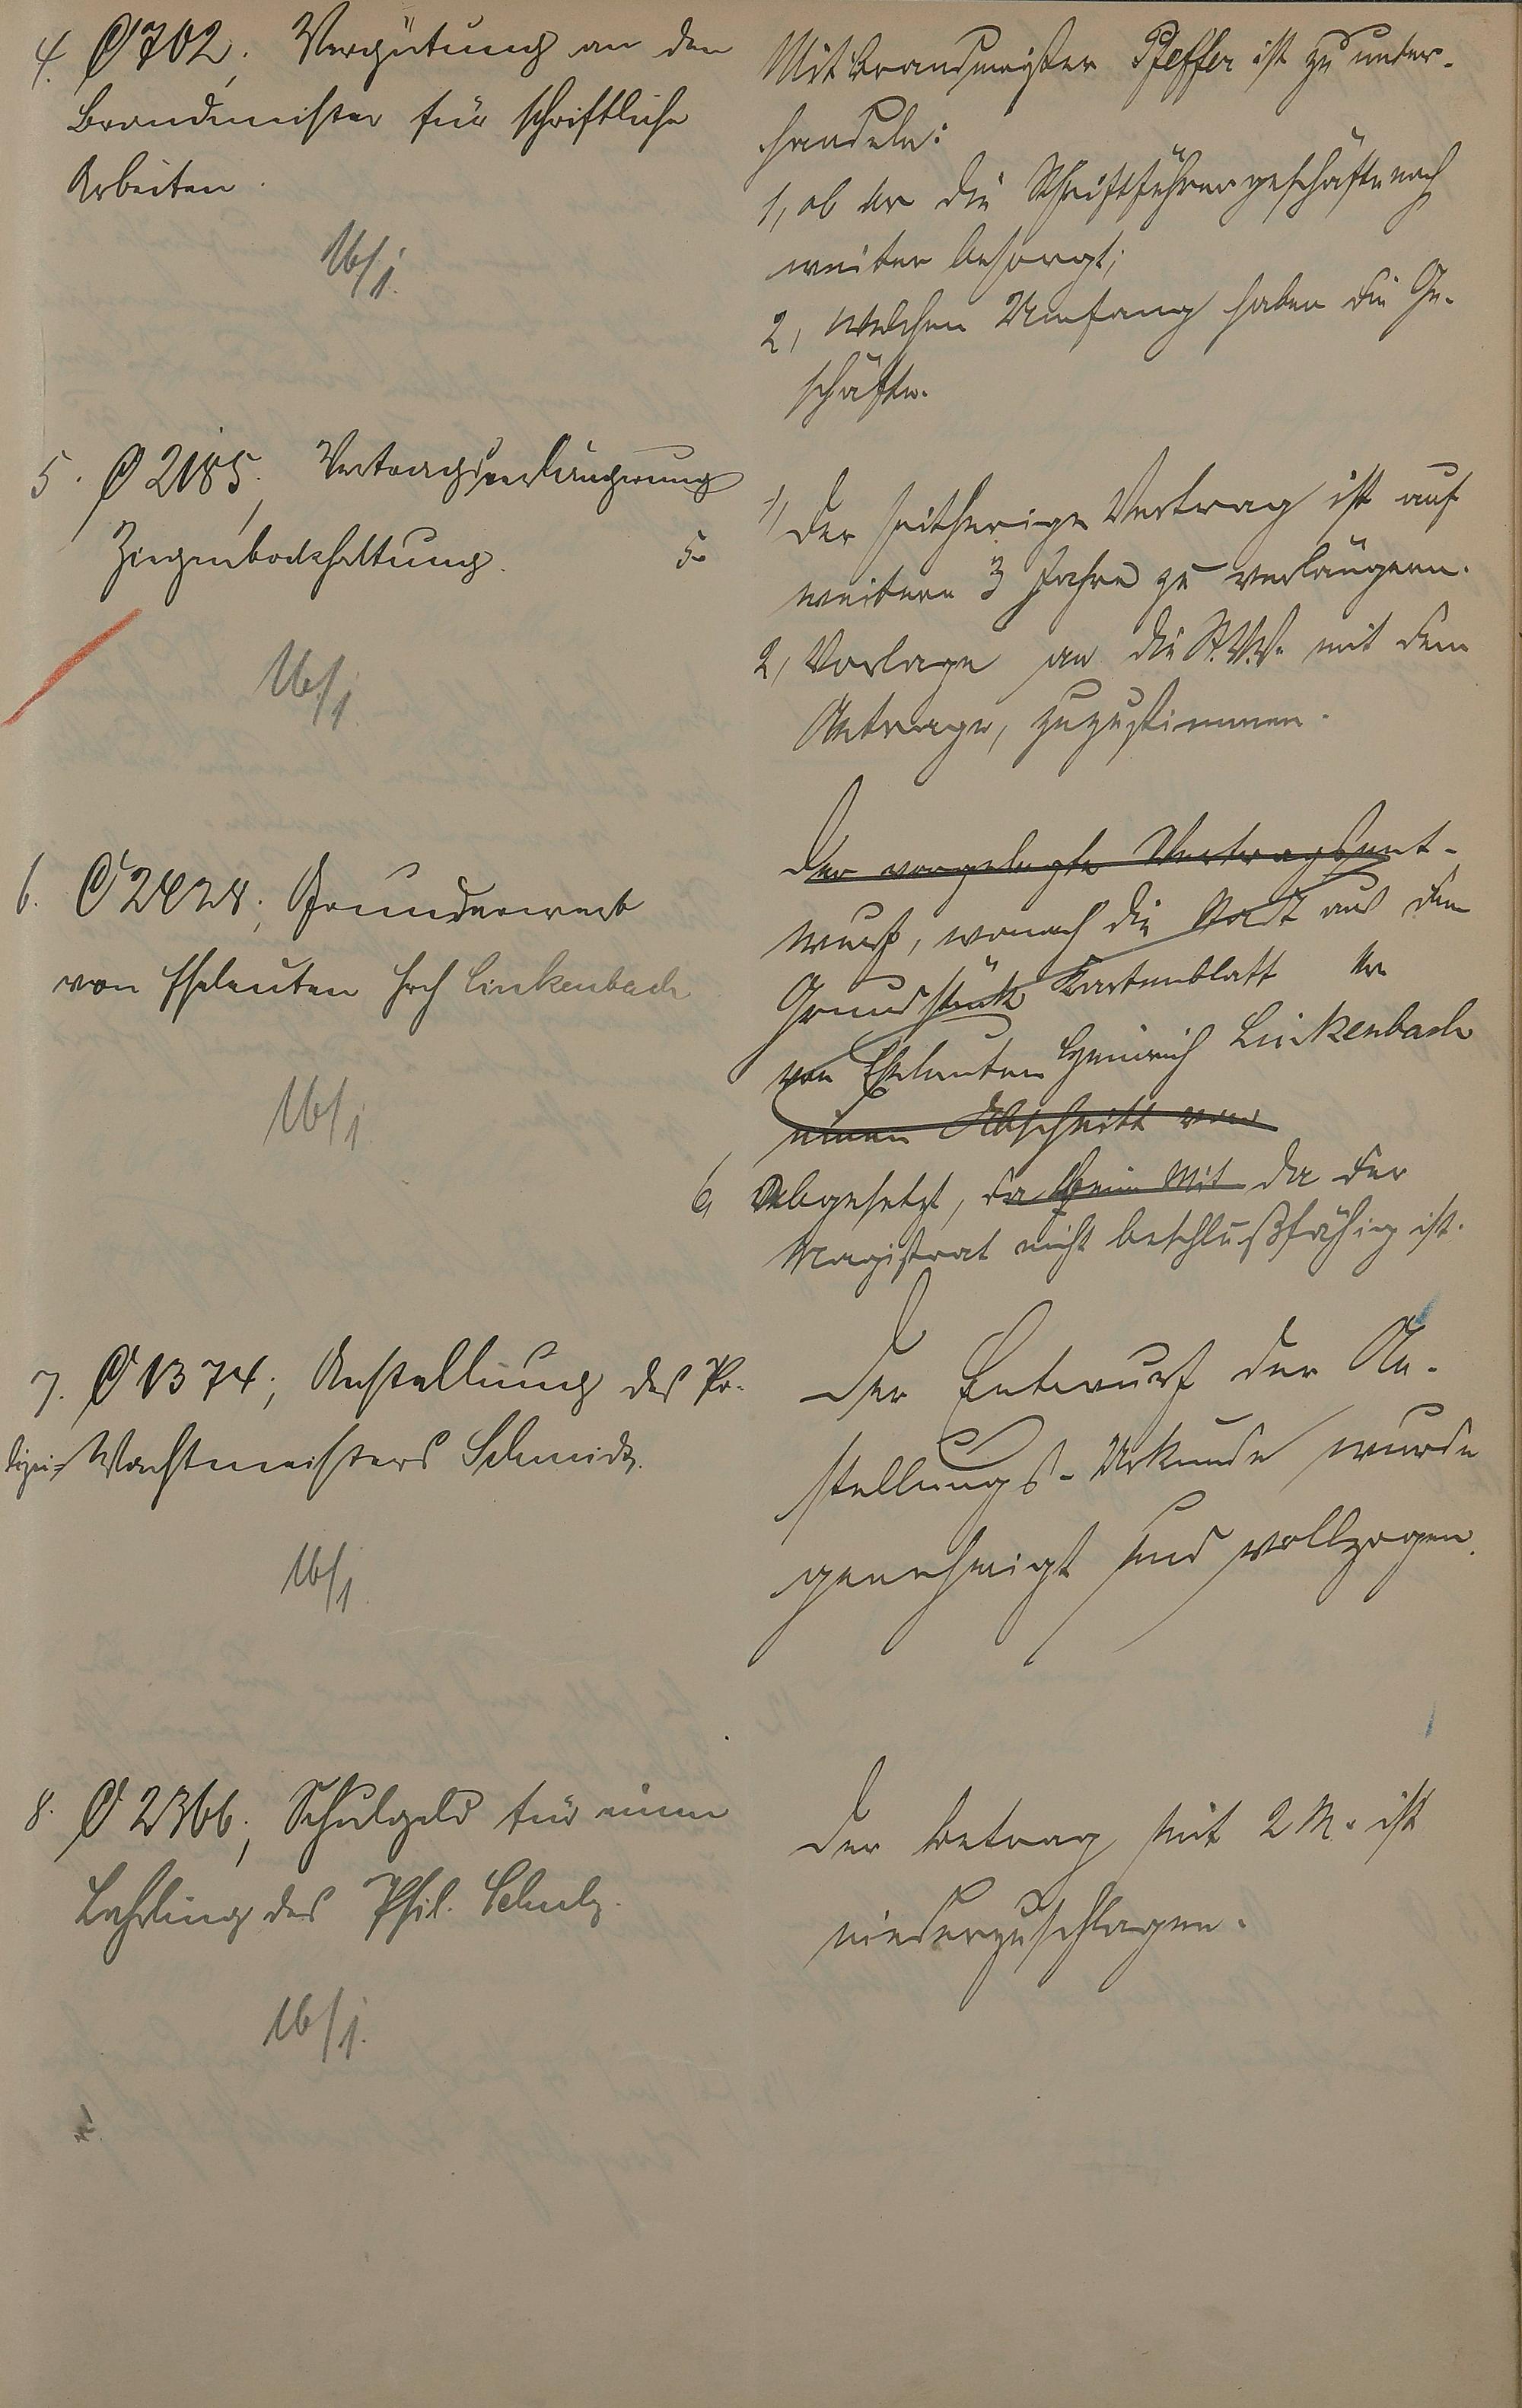 4. C 702; Vergütung an den
Brandmeister für schriftliche
Arbeiten.
16/1.
Mit Brandmeister Pfeffer ist zu unter-
handeln:
1, ob er die Schriftführergeschäfte noch
weiter besorgt;
2, welchen Umfang haben die Ge-
schäfte.
5. C 2185; Vertragsverlängerung
Ziegenbockhaltung.
16/1.
5.
1, Der seitherige Vertrag ist auf
weitere 3 Jahre zu verlängern.
2, Vorlage an die St.V.V. mit dem
Antrage, zuzustimmen.
6. C 2428; Grunderwerb
von Eheleuten Hch Linkenbach
16/1.
Der vorgelegte Vertragsent-
wurf, wonach die Stadt aus dem
Grundstück Kartenblatt Nr
von Eheleuten Heinrich Linkenbach
einen Abschnitt von
6, Abgesetzt, da beim Mit da der
Magistrat nicht beschlußfähig ist.
7. C 1374; Anstellung des Po-
lizei-Wachtmeisters Schmidt.
16/1.
Der Entwurf der An-
stellungs-Urkunde wurde
genehmigt und vollzogen.
8. C 2366; Schulgeld für einen
Lehrling des Phil. Schulz.
16/1.
Der Betrag mit 2 M. ist
niederzuschlagen.